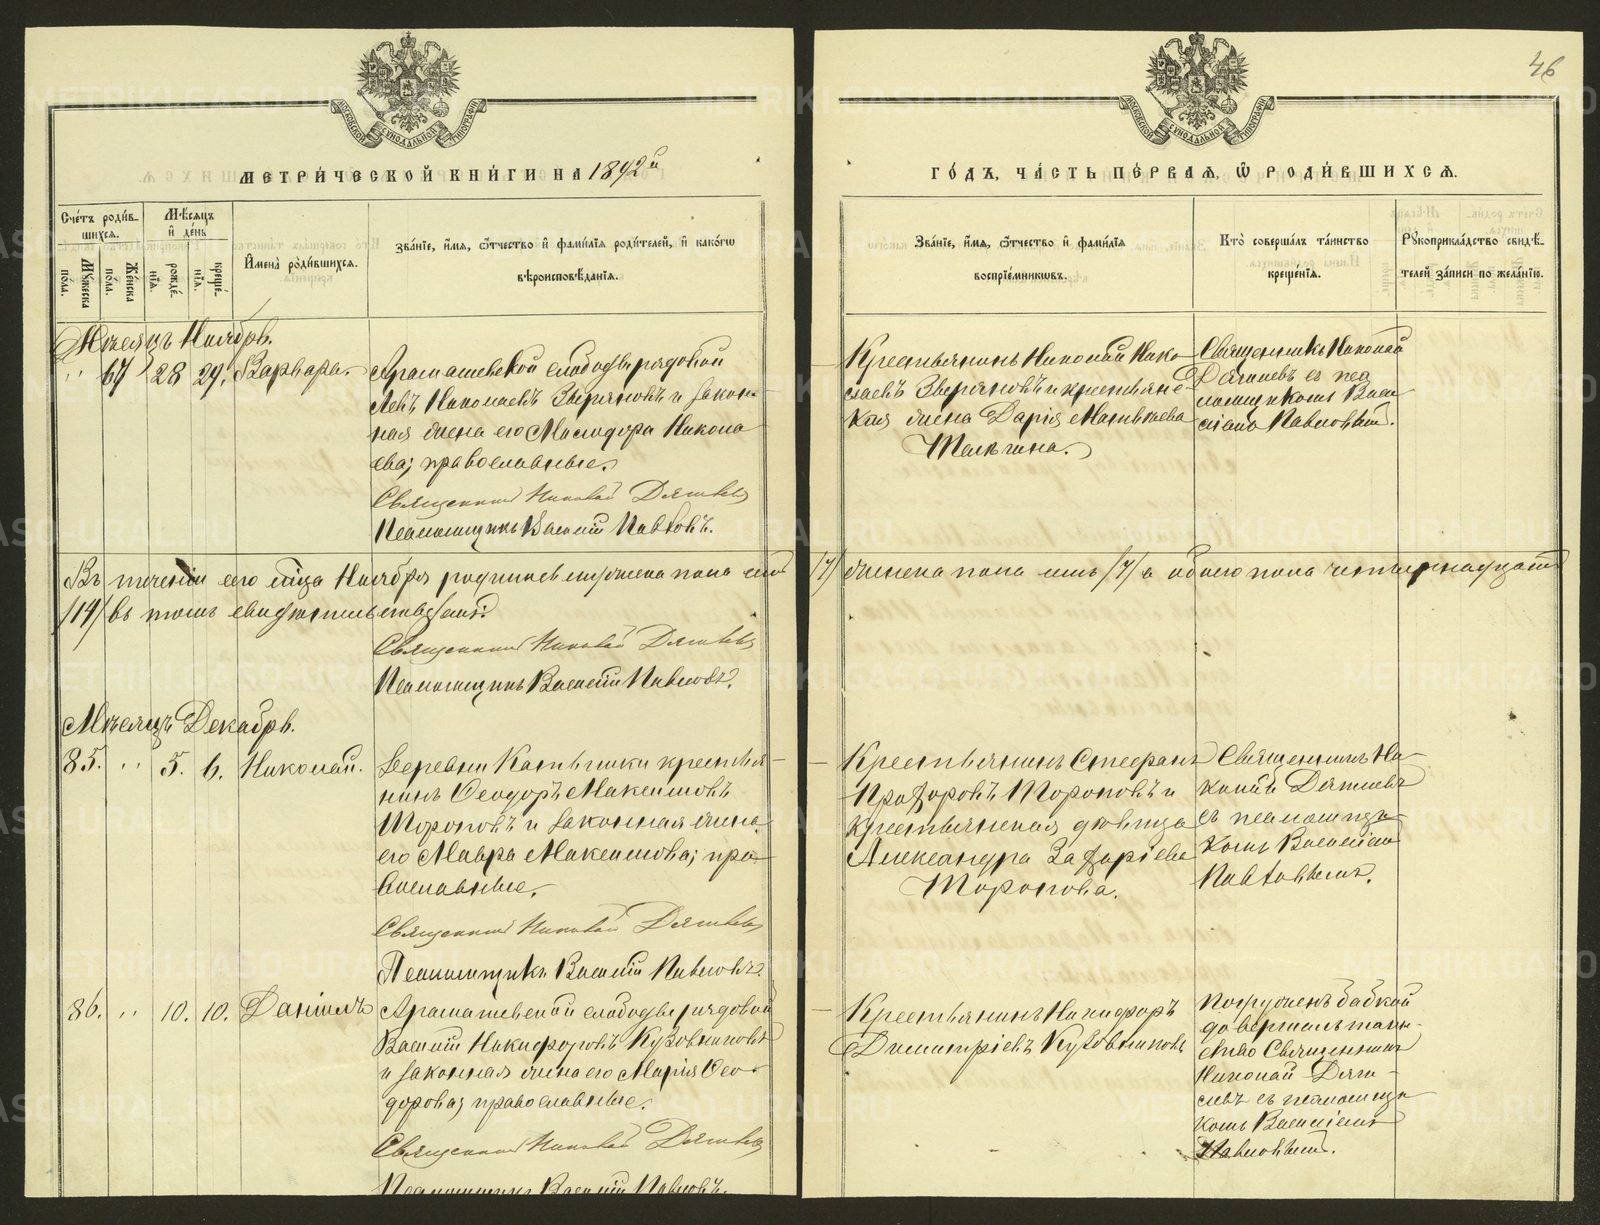 46
МОСКОВСКОЙ СѴНОДАЛЬНОЙ ТИПОГРАФІИ
МЕТРИ́ЧЕСКОЙ КНИ́ГИ НА 1892й
Сче́тъ роди́вшихсѧ.
Мѣ́сѧцъ и҆ де́нь
И҆мена̀ роди́вшихсѧ.
Зва́нїе, и҆́мѧ, ѻ҆́тчество и҆ фами́лїѧ роди́телей, и҆ како́гѡ
вѣроисповѣ́данїѧ.
Мꙋ́жеска по́ла.
Же́нска по́ла.
рожде́нїѧ.
креще́нїѧ.
Мѣсяцъ Ноябрь.
" 67 28 29. Варвара.
Арамашевской слободы рядовой
Левъ Николаевъ Зверяновъ и закон-
ная жена его Милидора Никола
ева; православные.
Священникъ Николай Дягилевъ
Псаломщикъ Василій Павловъ.
Въ теченіи сего м̃ца Ноября родилось муж
/14/ въ томъ свидѣтельствуемъ:
Священникъ Николай Дягилевъ
Псаломщикъ Василій Павловъ.
Мѣсяцъ Декабрь.
85. " 5. 6. Николай.
Деревни Катышки крестья-
нинъ Ѳеодоръ Максимовъ
Тороповъ и законная жена
его Мавра Максимова; пра-
вославные.
Священникъ Николай Дягилевъ
Псаломщикъ Василій Павловъ.
86. " 10. 10. Даніилъ
Арамашевской слободы рядовой
Василій Никифоровъ Кузовниковъ
и законная жена его Марія Ѳео-
дорова; православные.
Священникъ Николай Дягилевъ
Псаломщикъ Василій Павловъ.
ГО́ДЪ, ЧА́СТЬ ПЕ́РВАѦ, Ѡ҆ РОДИ́ВШИХСѦ.
Зва́нїе, и҆́мѧ, ѻ҆́тчество и҆ фами́лїѧ
воспрїе́мникѡвъ.
Кто̀ соверша́лъ та́инство
креще́нїѧ.
Рꙋкоприкла́дство свидѣ́-
телей за́писи по жела́нїю.
Крестьянинъ Николай Нико
лаевъ Зверяновъ и крестьянс-
кая жена Дарія Матвѣева
Священникъ Николай
Дягилевъ съ пса
ломщикомъ Васи
ліемъ Павловым.
/7/ женска пола семь /7/ а обоего пола четырнадцать
Крестьянинъ Стефанъ
Прохоровъ Тороповъ и
крестьянская дѣвица
Александра Захаріева
Торопова.
Священникъ Ни-
колай Дягилевъ
съ псаломщи-
комъ Василіем
Павловымъ.
Крестьянинъ Никифоръ
Димитріевъ Кузовниковъ
Погруженъ бабкой
довершилъ таин-
ство Священникъ
Николай Дяги-
левъ съ псаломщи
комъ Василіемъ
Павловым.